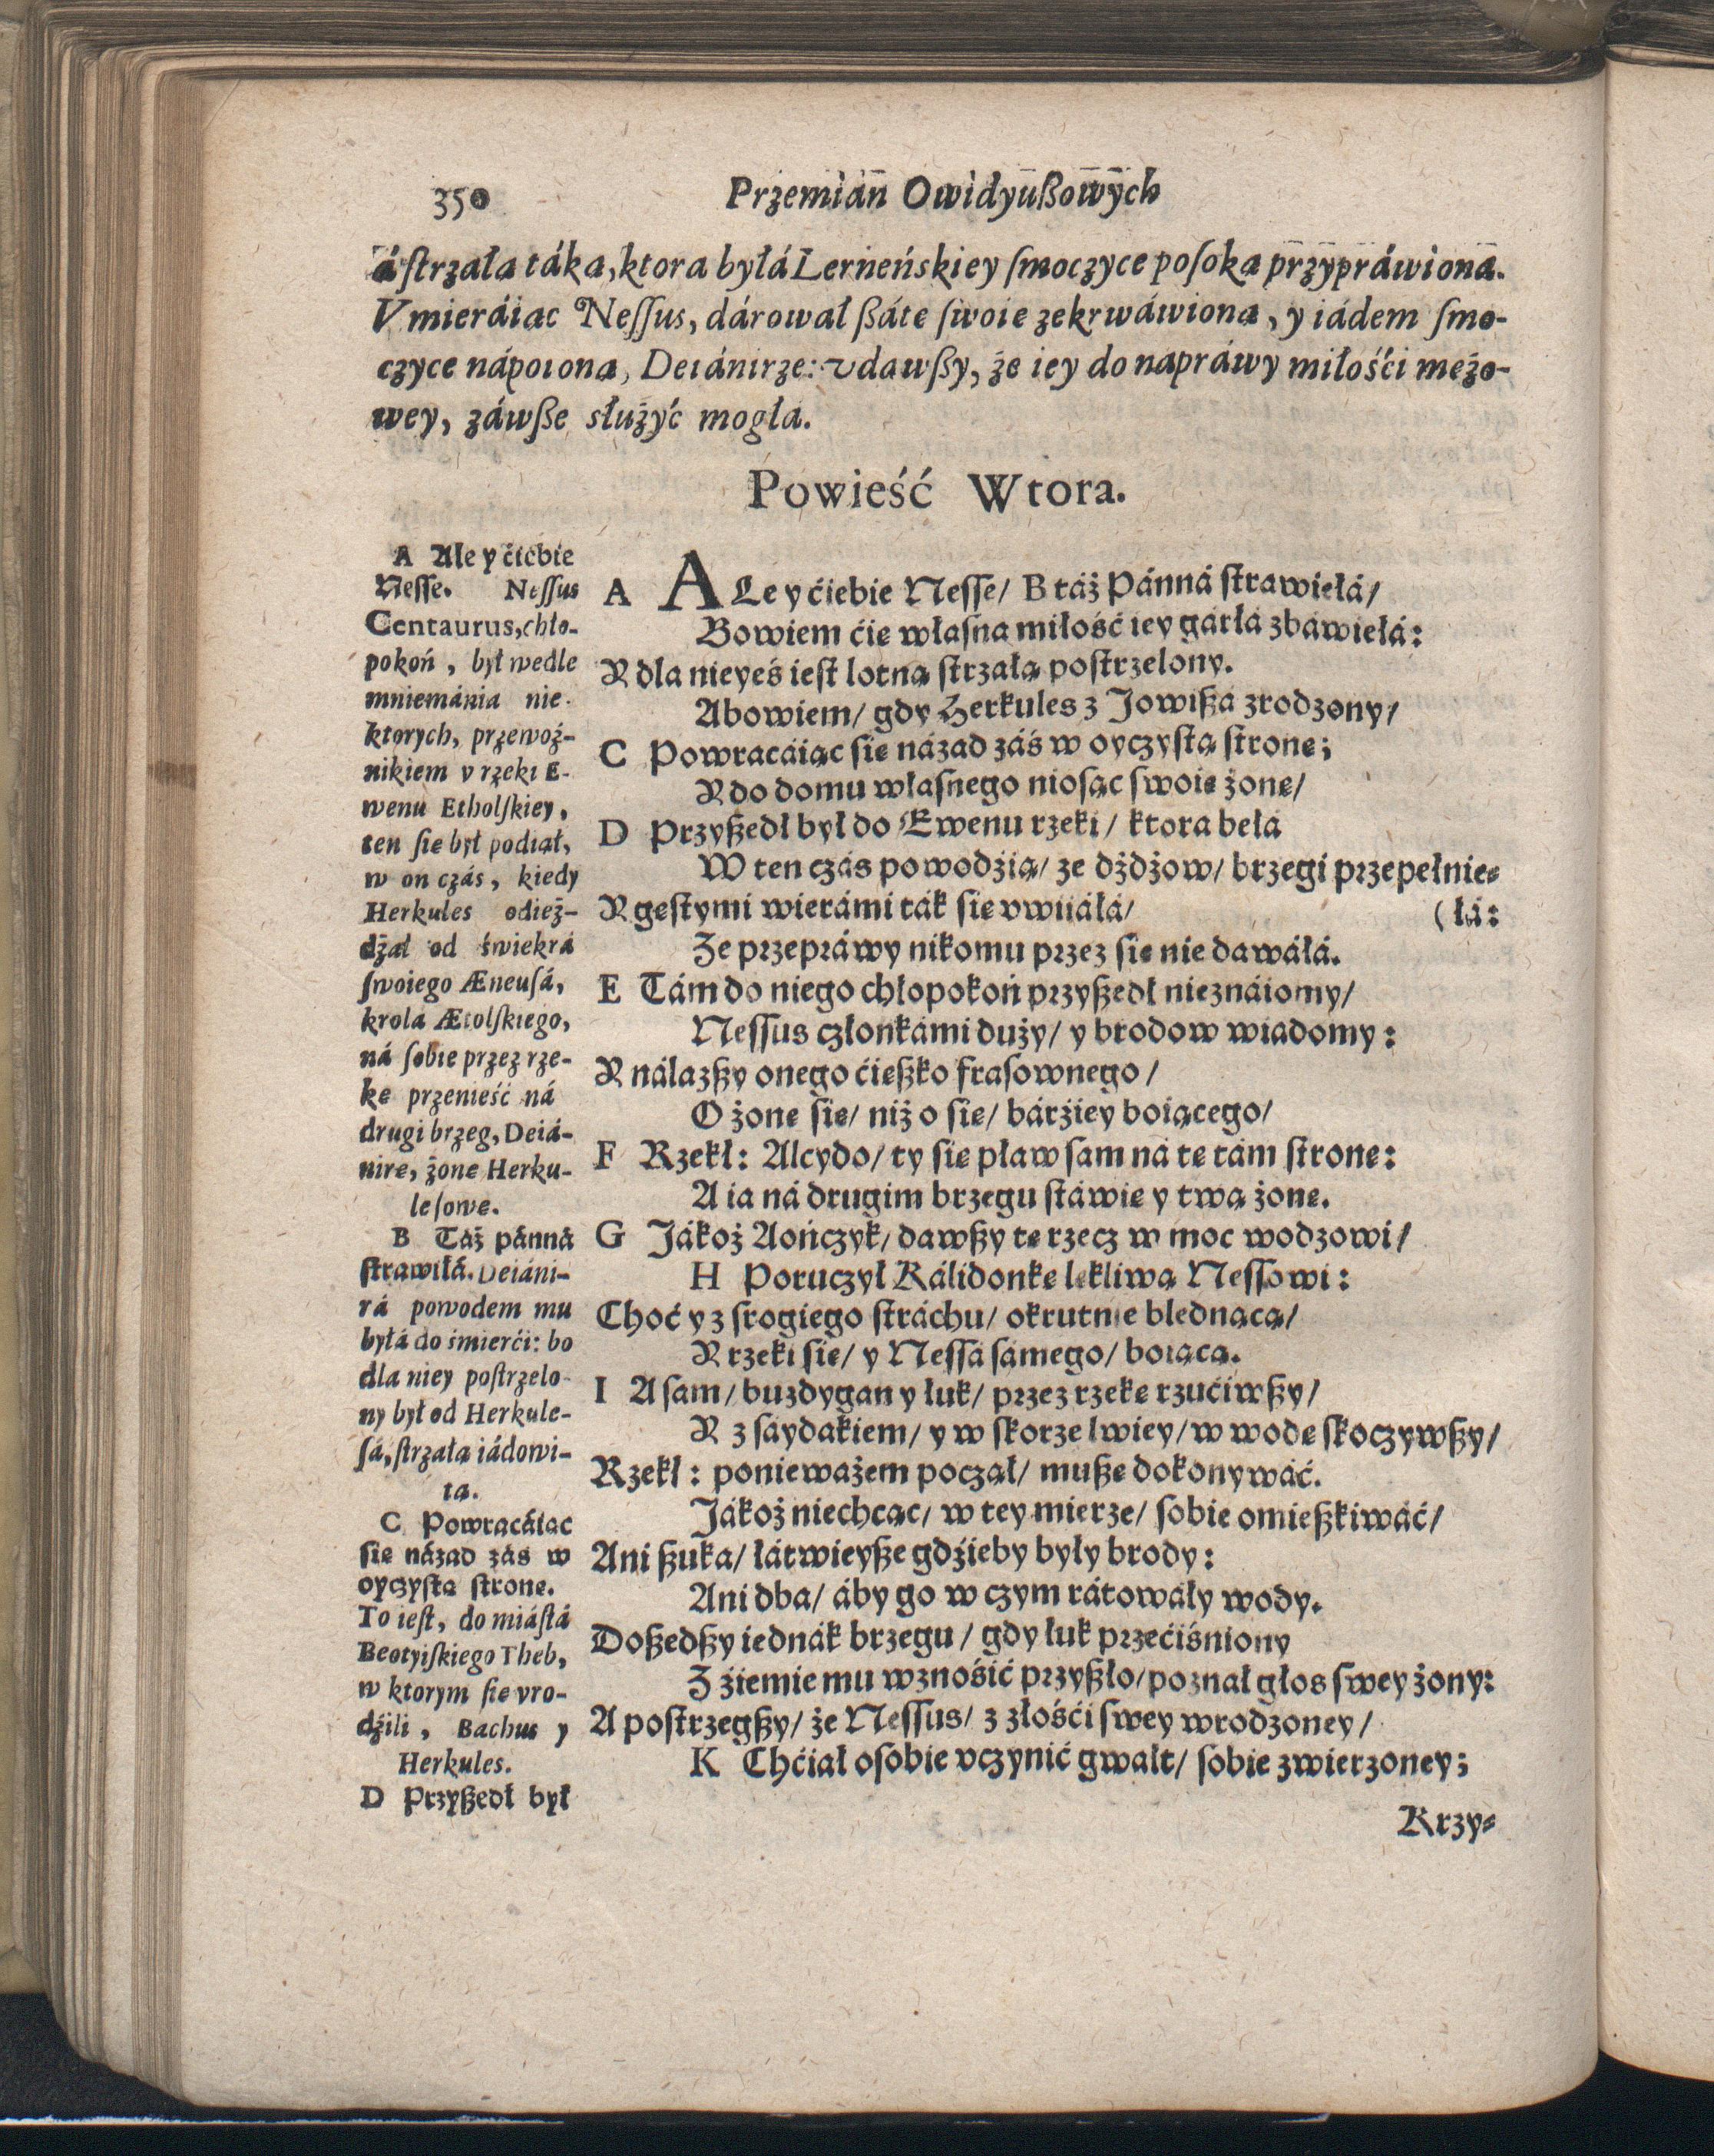 350 Przemian Owidyußowych
á ſtrzała táka, ktora byłá Lerneńskiey ſmoczyce poſoka przypráwiona.
Vmieráiac Neſſus, dárował ßáte ſwoie zekrwáwiona, y iádem ſmo-
czyce nápoiona, Deiánirze: vdawßy, że iey do napráwy miłośći meżo-
wey, záwße służyć mogła.
Powieść Wtora.
A Ale y ćiebie
Neſſe. Neſſus
Centaurus, chło-
pokoń, był wedle
mniemánia nie-
ktorych, przewoź-
nikiem v rzeki E-
wenu Etholſkiey,
ten ſie był podiał,
w on czás, kiedy
Herkules odież-
dżał od świekrá
ſwoiego Æneuſá,
krolá Ætolſkiego,
ná ſobie przez rze-
ke przenieść ná
drugi brzeg, Deiá-
nire, żone Herku-
leſowe.
B Táż pánná
ſtrawiłá. Deiáni-
rá powodem mu
byłá do śmierći: bo
dla niey poſtrzelo-
ny był od Herkule-
ſá, ſtrzała iádowi-
ta.
C Powracáiac
ſie názad zás w
oyczyſta ſtrone.
To ieſt, do miáſtá
Beotyiſkiego Theb,
w ktorym ſie vro-
dźili, Bachus y
Herkules.
D Przyßedł był
A ALe y ćiebie Neſſe/ B táż Pánná ſtrawiełá/
Bowiem ćie właſna miłość iey gárłá zbáwiełá:
Y dla nieyeś ieſt lotną ſtrzałą poſtrzelony.
Abowiem/ gdy Herkules z Jowißá zrodzony/
C Powracáiąc ſie názad záś w oyczyſtą ſtrone;
Y do domu właſnego nioſąc ſwoie żone/
D Przyßedł był do Ewenu rzeki/ ktora bełá
W ten czás powodźią/ ze dżdżow/ brzegi przepełnie-
Y geſtymi wierámi ták ſie vwiiáłá/ (łá:
Że przepráwy nikomu przez ſie nie dawáłá.
E Tám do niego chłopokoń przyßedł nieznáiomy/
Neſſus członkámi duży/ y brodow wiadomy:
Y nálazßy onego ćießko fraſownego/
O żone ſie/ niż o ſie/ bárżiey boiącego/
F Rzekł: Alcydo/ ty ſie pław ſam ná te tám ſtrone:
A ia ná drugim brzegu ſtáwie y twą żone.
G Jákoż Aończyk/ dawßy te rzecz w moc wodzowi/
H Poruczył Kálidonke lekliwą Neſſowi:
Choć y z ſrogiego ſtráchu/ okrutnie blednącą/
Y rzeki ſie/ y Neſſá ſámego/ boiącą.
I A ſam/ buzdygan y łuk/ przez rzeke rzućiwßy/
Y z ſaydakiem/ y w ſkorze lwiey/ w wode ſkoczywßy/
Rzekł: ponieważem począł/ muße dokonywáć.
Jákoż niechcąc/ w tey mierze/ ſobie omießkiwáć/
Ani ßuka/ łátwieyße gdźieby były brody:
Ani dba/ áby go w czym rátowáły wody.
Doßedßy iednák brzegu/ gdy łuk przećiśniony
Z źiemie mu wznośić przyßło/ poznał głos ſwey żony:
A poſtrzegßy/ że Neſſus/ z złośći ſwey wrodzoney/
K Chćiał oſobie vczynić gwałt/ ſobie zwierzoney;
Krzy-